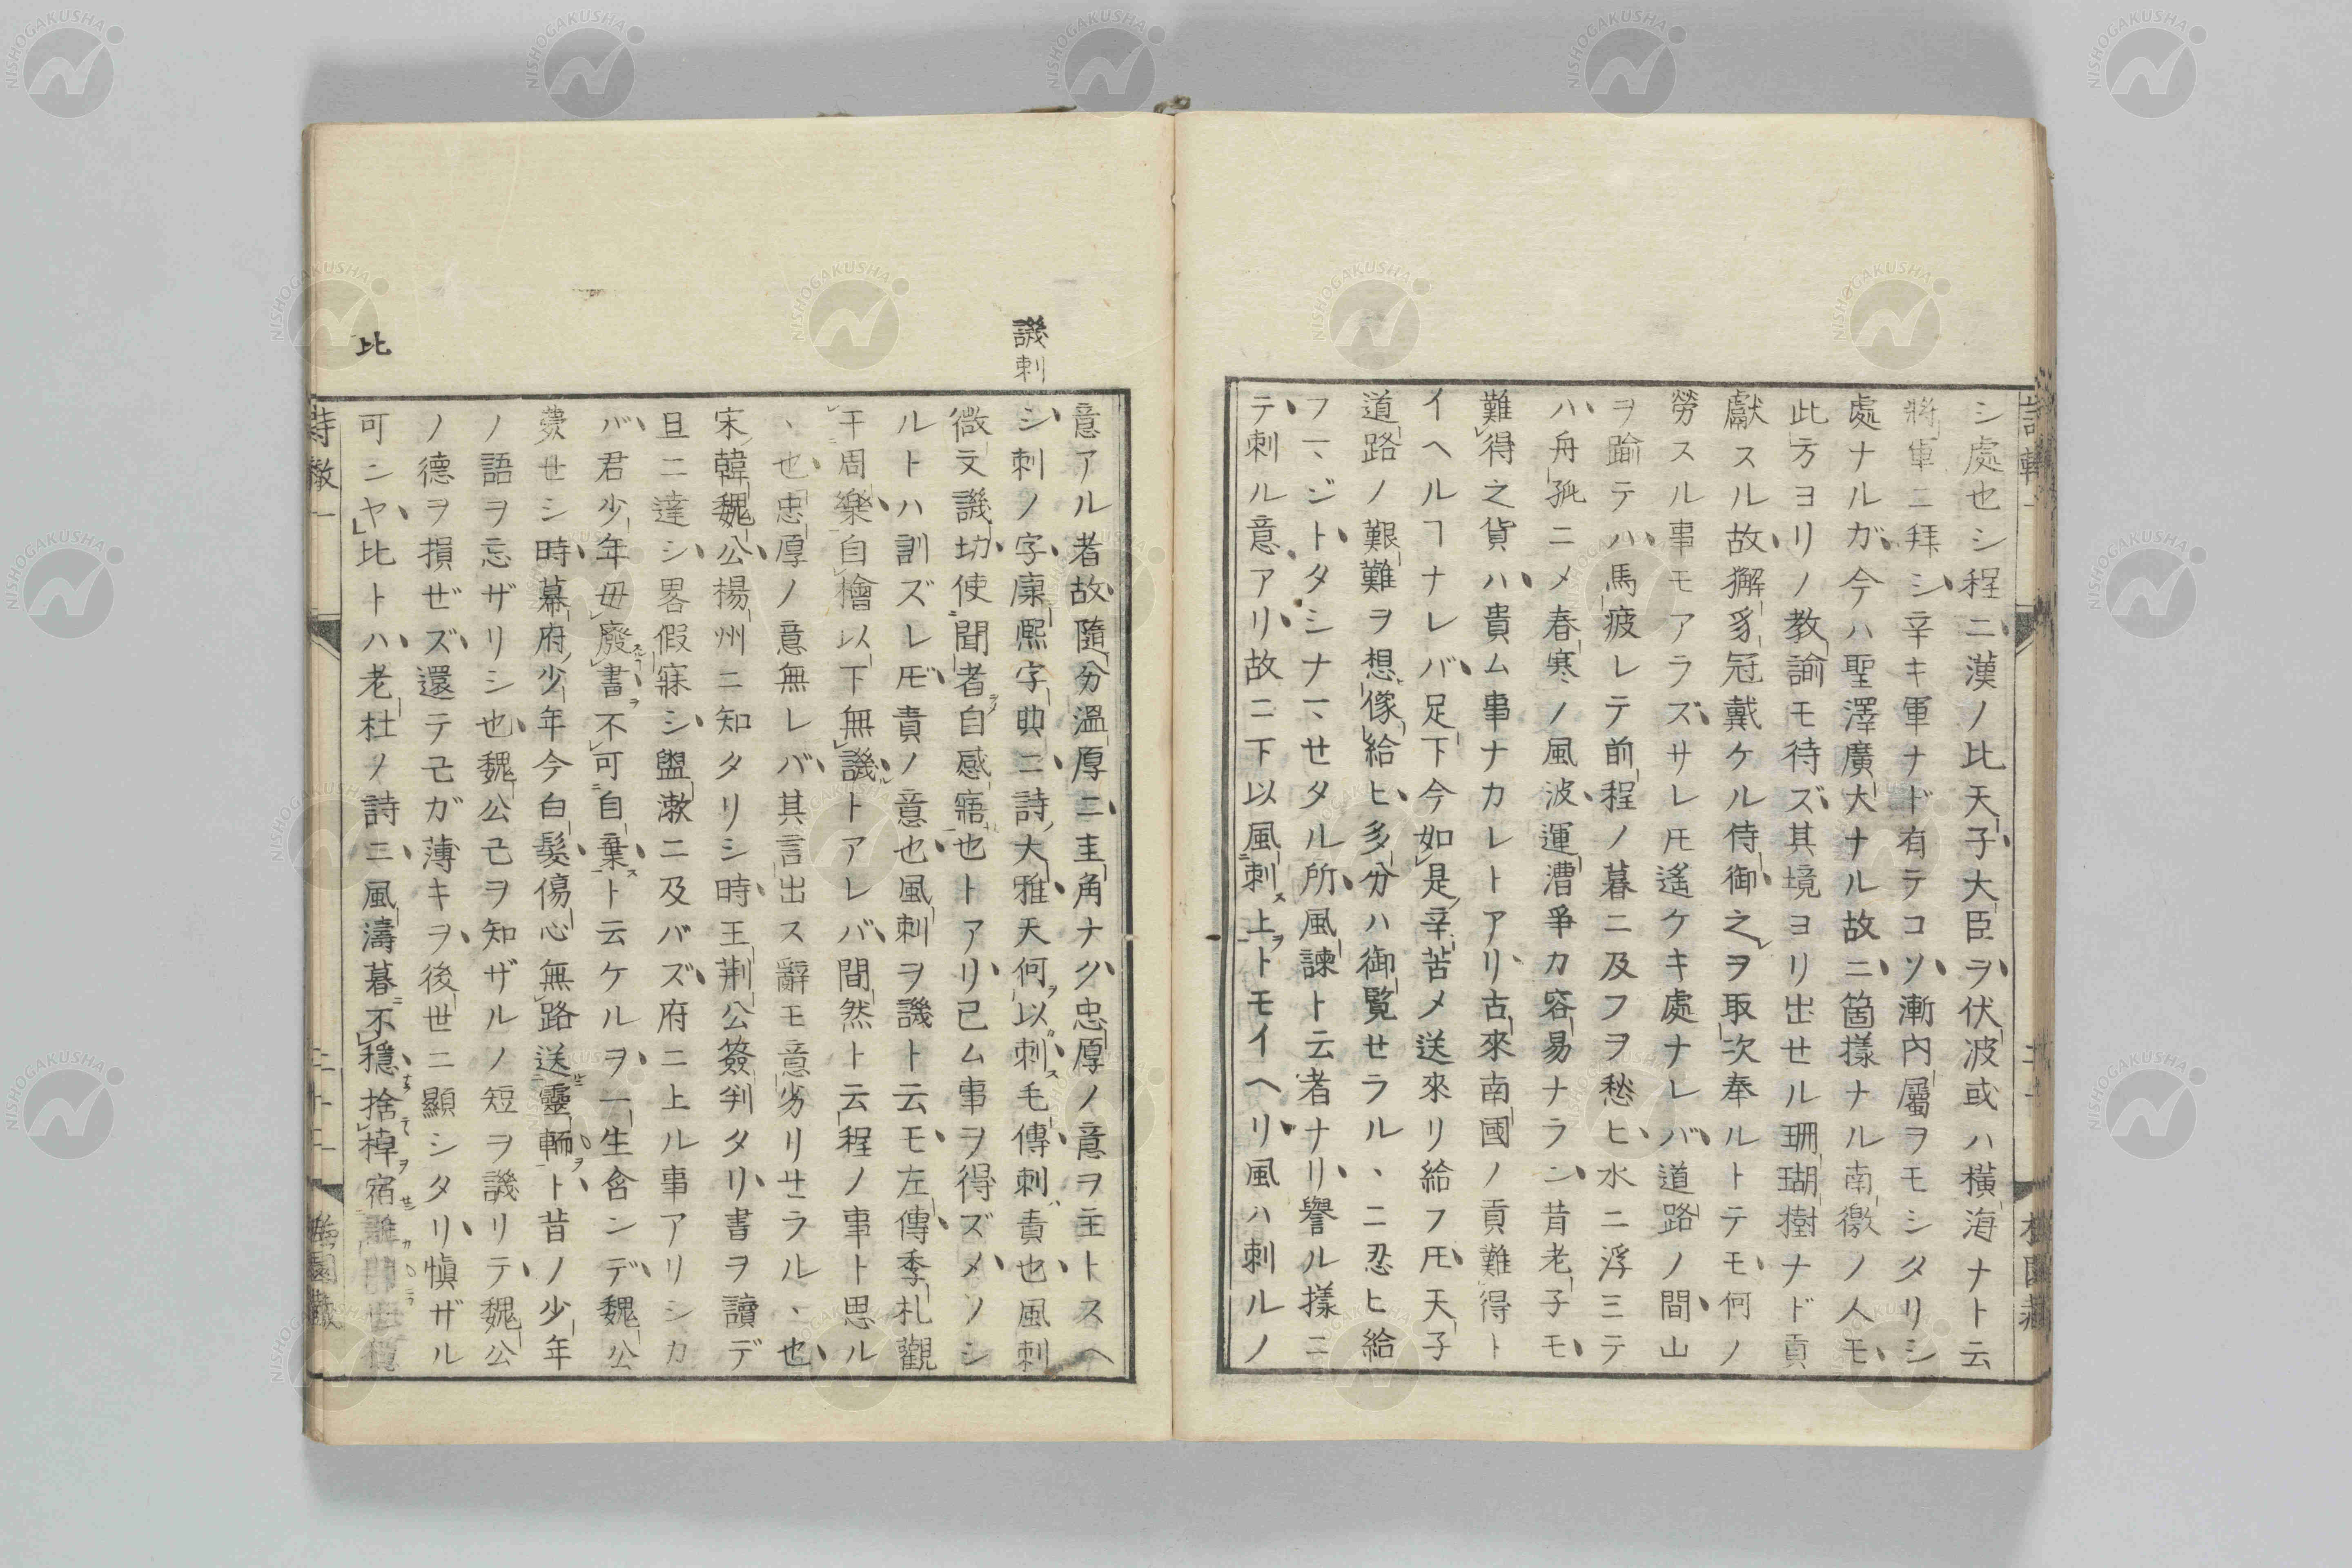 シ處也シ程ニ漢ノ比天子大臣ヲ伏波或ハ橫海ナト云
將軍ニ拜シ辛キ軍ナド有テコソ漸內屬ヲモシタリシ
處ナルガ今ハ聖澤廣大ナル故ニ箇樣ナル南徼ノ人モ
此方ヨリノ教諭モ待ズ其境ヨリ出セル珊瑚樹ナド貢
獻スル故獬豸冠戴ケル侍御之ヲ取次奉ルトテモ何ノ
勞スル事モアラズサレ𪜈遙ケキ處ナレバ道路ノ間山
ヲ踰テハ馬疲レテ前程ノ暮ニ及フヲ愁ヒ水ニ浮ミテ
ハ舟孤ニメ春寒ノ風波運漕爭カ容易ナラン昔老子モ
難得之貨ハ貴ム事ナカレトアリ古來南國ノ貢難得ト
イヘルヿナレバ足下今如是辛苦メ送來リ給フ𪜈天子
道路ノ艱難ヲ想像給ヒ多分ハ御覽セラルヽニ忍ヒ給
フマジトタシナマセタル所風諫ト云者ナリ譽ル樣ニ
テ刺ル意アリ故ニ下以風刺上トモイヘリ風ハ刺ルノ
意アル者故隨分溫厚ニ圭角ナク忠厚ノ意ヲ主トスヘ
譏刺
シ刺ノ字康熙字典ニ詩大雅天何以刺毛傳刺責也風刺
微文譏切使聞者自感寤也トアリ已ム事ヲ得ズメソシ
ルトハ訓ズレ𪜈責ノ意也風刺ヲ譏ト云モ左傳季札觀
于周樂自檜以下無譏トアレバ間然ト云程ノ事ト思ル
ヽ也忠厚ノ意無レバ其言出ス辭モ意劣リサラルヽ也
宋韓魏公楊州ニ知タリシ時王荆公簽判タリ書ヲ讀デ
旦ニ達シ畧假寐シ盥漱ニ及バズ府ニ上ル事アリシカ
バ君少年毋廢書不可自棄ト云ケルヲ一生含ンデ魏公
薨世シ時幕府少年今白髮傷心無路送靈輀ト昔ノ少年
ノ語ヲ忘ザリシ也魏公己ヲ知ザルノ短ヲ譏リテ魏公
ノ德ヲ損ぜズ還テ己ガ薄キヲ後世ニ顯シタリ愼ザル
比
可シヤ比トハ老杜ノ詩ニ風濤暮不穩捨棹宿誰門
詩轍一
二十二